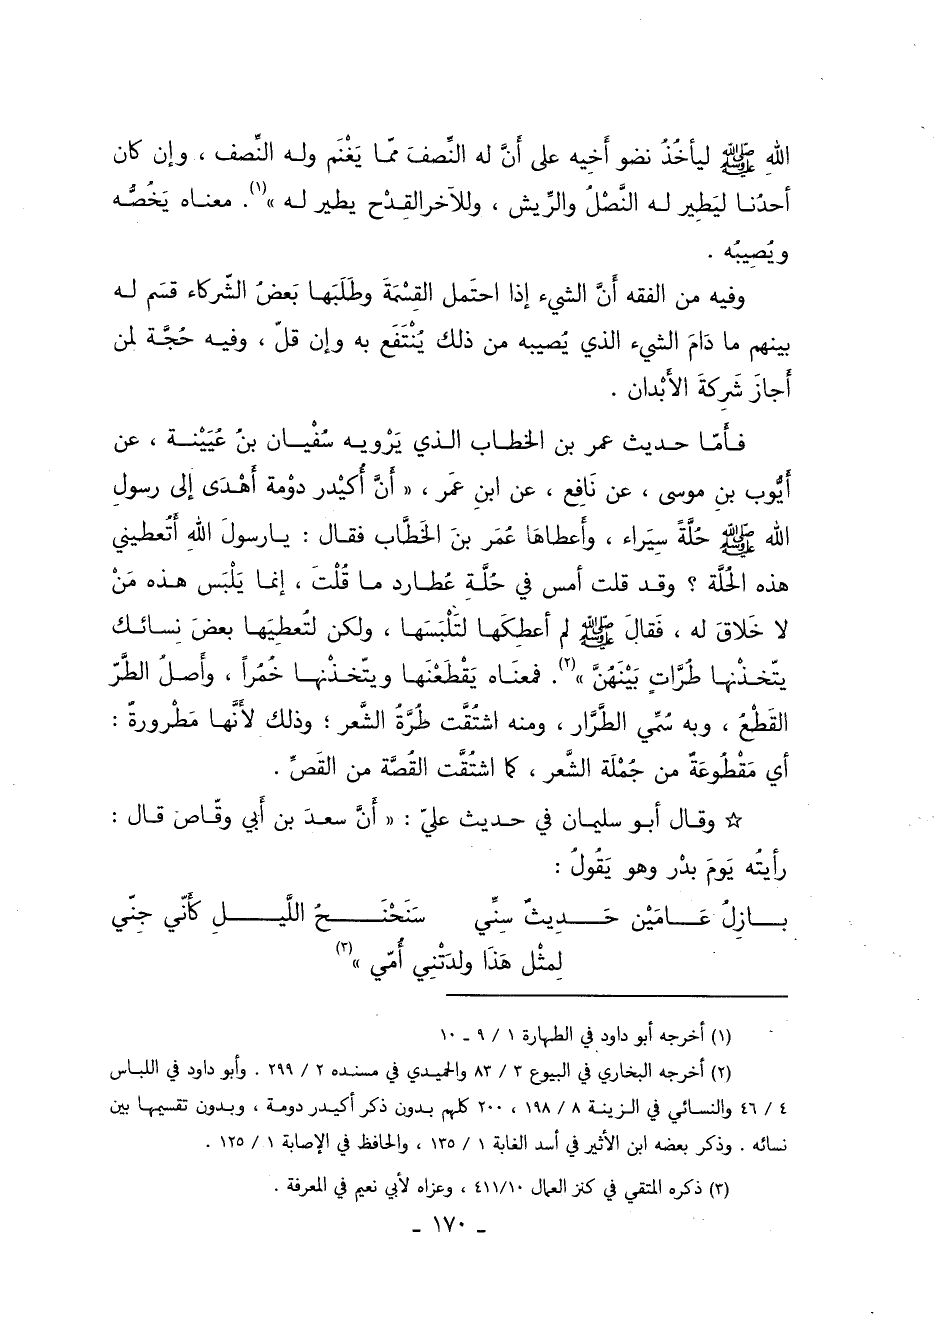 الله ﷺ ليأخُذُ نضو أخيه على أنَّ له النِّصفَ ممّا يَغْنَم وله النِّصف ، وإن كان
أحدُنا ليَطِير له النَّصْلُ والرِّيش ، وللآخرالقِدْح يطير له »(١). معناه يَخُصُّه
ويُصِيبُه .
وفيه من الفقه أنَّ الشيء إذا احتمل القِسْمَةَ وطَلَبَها بَعضُ الشّركاء قسَم له
بينهم ما دَامَ الشيء الذي يُصيبه من ذلك يُنْتَفَع به وإن قلّ ، وفيه حُجَّة لمن
أجازَ شَركةَ الأَبْدان .
فأمّا حديث عمر بن الخطاب الذي يَرْويه سُفْيان بنُ عُيَيْنة ، عن
أيُّوب بن موسى ، عن نَافِع ، عن ابن عمَر ، « أنَّ أُكيْدر دوْمة أهْدَى إلى رسولِ
الله ﷺ حُلَّةً سِيَراء ، وأعطاها عُمَر بنَ الخطَّاب فقال : يارسولَ اللهِ أتُعطيني
هذه الحُلَّة ؟ وقد قلت أمس في حُلَّة عُطارد ما قُلْتَ ، إنما يَلْبَس هذه مَنْ
لا خَلاقَ له ، فَقالَ ﷺ لم أعطِكَها لتَلْبَسَها ، ولكن لتُعطِيَها بعضَ نِسائك
يتّخذْنها طُرَّاتٍ بَيْنَهُنَّ »(٢). فمعناه يَقْطَعْنَها ويتّخذْنِها خُمُراً ، وأصلُ الطَّرّ
القَطْعُ ، وبه سُمِّي الطَّرَار ، ومنه اشتُقَّت طُرَّةُ الشَّعر ؛ وذلك لأنَّها مَطْرورة :
أي مَقْطُوعَةٌ من جُمْلَة الشَّعر ، كما اشتُقَّت القُصَّة من القَصِّ .
☆ وقال أبو سليمان في حديث عليّ : « أنَّ سعدَ بن أبي وقّاص قال :
رأيتُه يَومَ بدْر وهو يَقُولُ :
بازلُ عَامَيْن حَديثٌ سنِّي سَنَحْنَحُ اللَّيل كأنّي جنّي
لِمثْل هَذَا ولدَتْني أُمّي »(٣)
(١) أخرجه أبو داود في الطهارة ١ / ٩ ـ ١٠
(٢) أخرجه البخاري في البيوع ٣ / ٨٣ والحميدي في مسنده ٢ / ٢٩٩ . وأبو داود في اللباس
٤ / ٤٦ والنسائي في الزينة ٨ / ١٩٨ ، ٢٠٠ كلهم بدون ذكر أكيدر دومة ، وبدون تقسيمها بين
نسائه . وذكر بعضه ابن الأثير في أسد الغابة ١ / ١٣٥ ، والحافظ في الإصابة ١ / ١٢٥ .
(٣) ذكره المتقي في كنز العمال ٤١١/١٠ ، وعزاه لأبي نعيم في المعرفة .
ـ ١٧٠ ـ